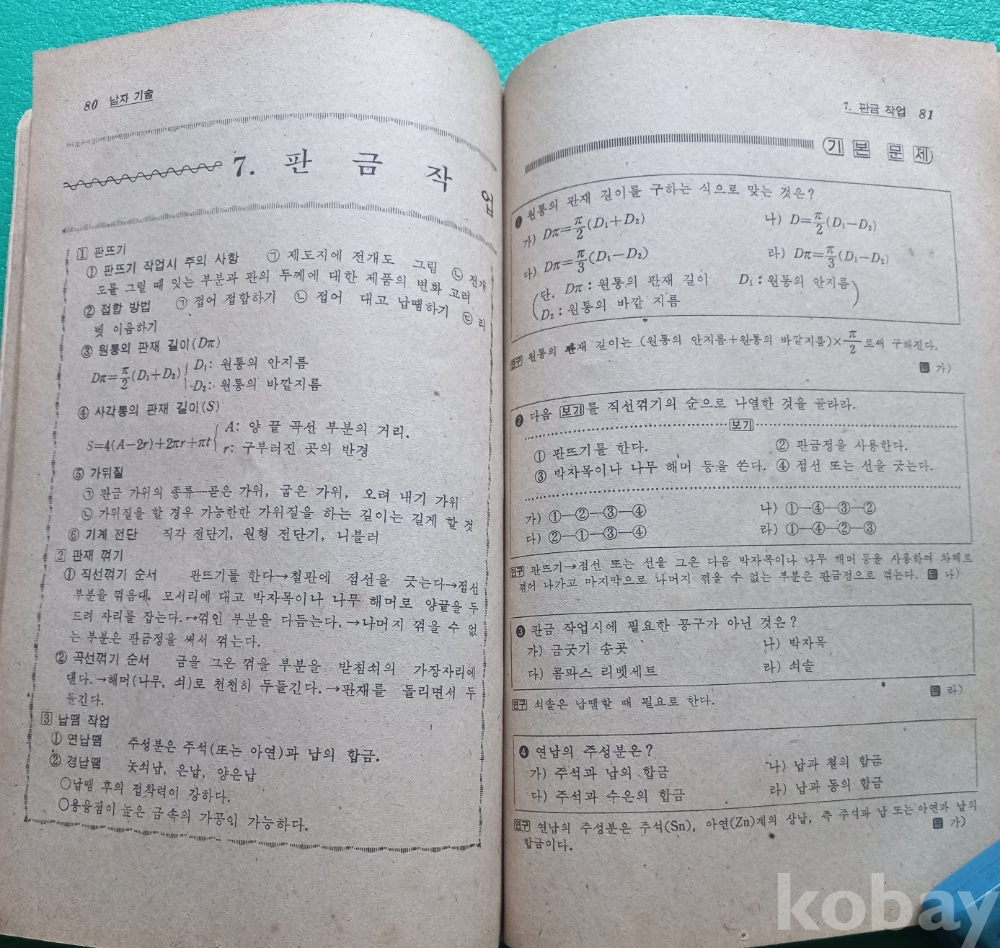 80 남자 기술
7. 판 금 작 업
1 판뜨기
① 판뜨기 작업시 주의 사항 ㉠ 제도지에 전개도 그림 ㉡ 전개
도를 그릴 때 잇는 부분과 판의 두께에 대한 제품의 변화 고려
② 접합 방법 ㉠ 접어 접합하기 ㉡ 접어 대고 납땜하기 ㉢ 리
벳 이음하기
③ 원통의 판재 길이(Dπ)
Dπ=π/2(D₁+D₂) D₁: 원통의 안지름
D₂: 원통의 바깥지름
④ 사각통의 판재 길이(S)
S=4(A-2r)+2πr+πt A: 양 끝 곡선 부분의 거리.
r: 구부러진 곳의 반경
⑤ 가위질
㉠ 판금 가위의 종류—곧은 가위, 굽은 가위, 오려 내기 가위
㉡ 가위질을 할 경우 가능한한 가위질을 하는 길이는 길게 할 것
⑥ 기계 전단 직각 전단기, 원형 전단기, 니블러
2 판재 꺾기
① 직선꺾기 순서 판뜨기를 한다→철판에 점선을 긋는다→점선
부분을 꺾음대, 모서리에 대고 박자목이나 나무 해머로 양끝을 두
드려 자리를 잡는다.→꺾인 부분을 다듬는다.→나머지 꺾을 수 없
는 부분은 판금정을 써서 꺾는다.
② 곡선꺾기 순서 금을 그은 꺾을 부분을 받침쇠의 가장자리에
댄다.→해머(나무, 쇠)로 천천히 두들긴다.→판재를 돌리면서 두
들긴다.
3 납땜 작업
① 연납땜 주성분은 주석(또는 아연)과 납의 합금.
② 경납땜 놋쇠납, 은납, 양은납
○납땜 후의 접착력이 강하다.
○용융점이 높은 금속의 가공이 가능하다.
7. 판금 작업 81
기 본 문 제
❶ 원통의 판재 길이를 구하는 식으로 맞는 것은?
가) Dπ=π/2(D₁+D₂) 나) D=π/2(D₁-D₂)
다) Dπ=π/3(D₁-D₂) 라) Dπ=π/3(D₁-D₂)
(단, Dπ: 원통의 판재 길이 D₁: 원통의 안지름
D₂: 원통의 바깥 지름)
연구 원통의 판재 길이는 (원통의 안지름+원통의 바깥지름)×π/2 로써 구해진다.
답 가)
❷ 다음 보기를 직선꺾기의 순으로 나열한 것을 골라라.
보기
① 판뜨기를 한다. ② 판금정을 사용한다.
③ 박자목이나 나무 해머 등을 쓴다. ④ 점선 또는 선을 긋는다.
가) ①—②—③—④ 나) ①—④—③—②
다) ②—①—③—④ 라) ①—④—②—③
연구 판뜨기→점선 또는 선을 그은 다음 박자목이나 나무 해머 등을 사용하여 차례로
꺾어 나가고 마지막으로 나머지 꺾을 수 없는 부분은 판금정으로 꺾는다. 답 나)
❸ 판금 작업시에 필요한 공구가 아닌 것은?
가) 금긋기 송곳 나) 박자목
다) 콤파스 리벳세트 라) 쇠솔
연구 쇠솔은 납땜할 때 필요로 한다. 답 라)
❹ 연납의 주성분은?
가) 주석과 납의 합금 나) 납과 철의 합금
다) 주석과 수은의 합금 라) 납과 동의 합금
연구 연납의 주성분은 주석(Sn), 아연(Zn)계의 상납, 즉 주석과 납 또는 아연과 납의
합금이다. 답 가)
kobay